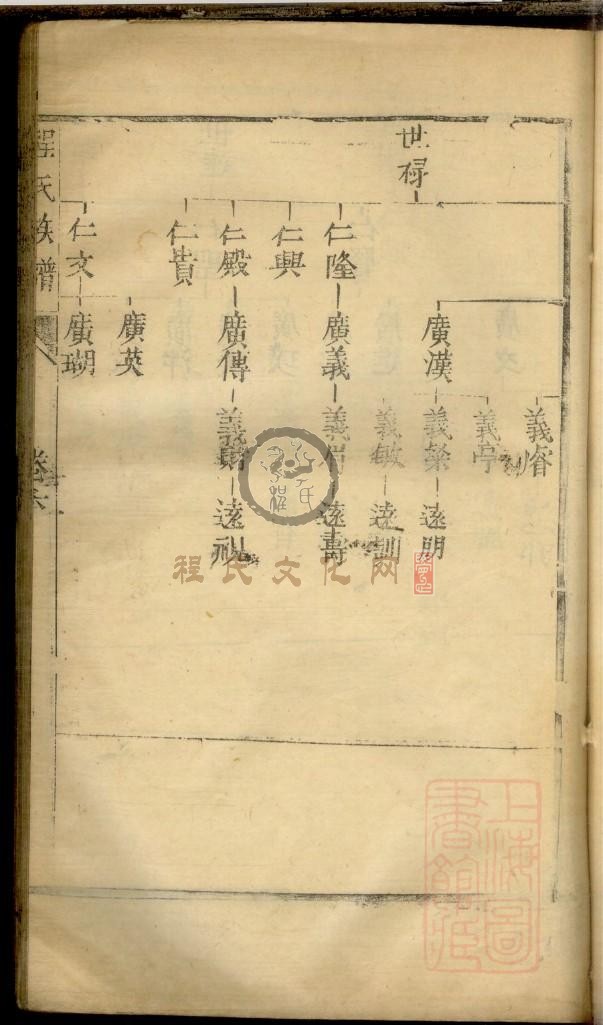 世祿
義睿
義亭
廣漢
義榮
遠明
義敏
遠訓
仁隆
廣義
遠壽
仁興
仁殿
廣傳
遠祝
仁貴
廣英
仁文
廣瑚
程氏族譜
卷六
程氏文化网
上海圖書館藏